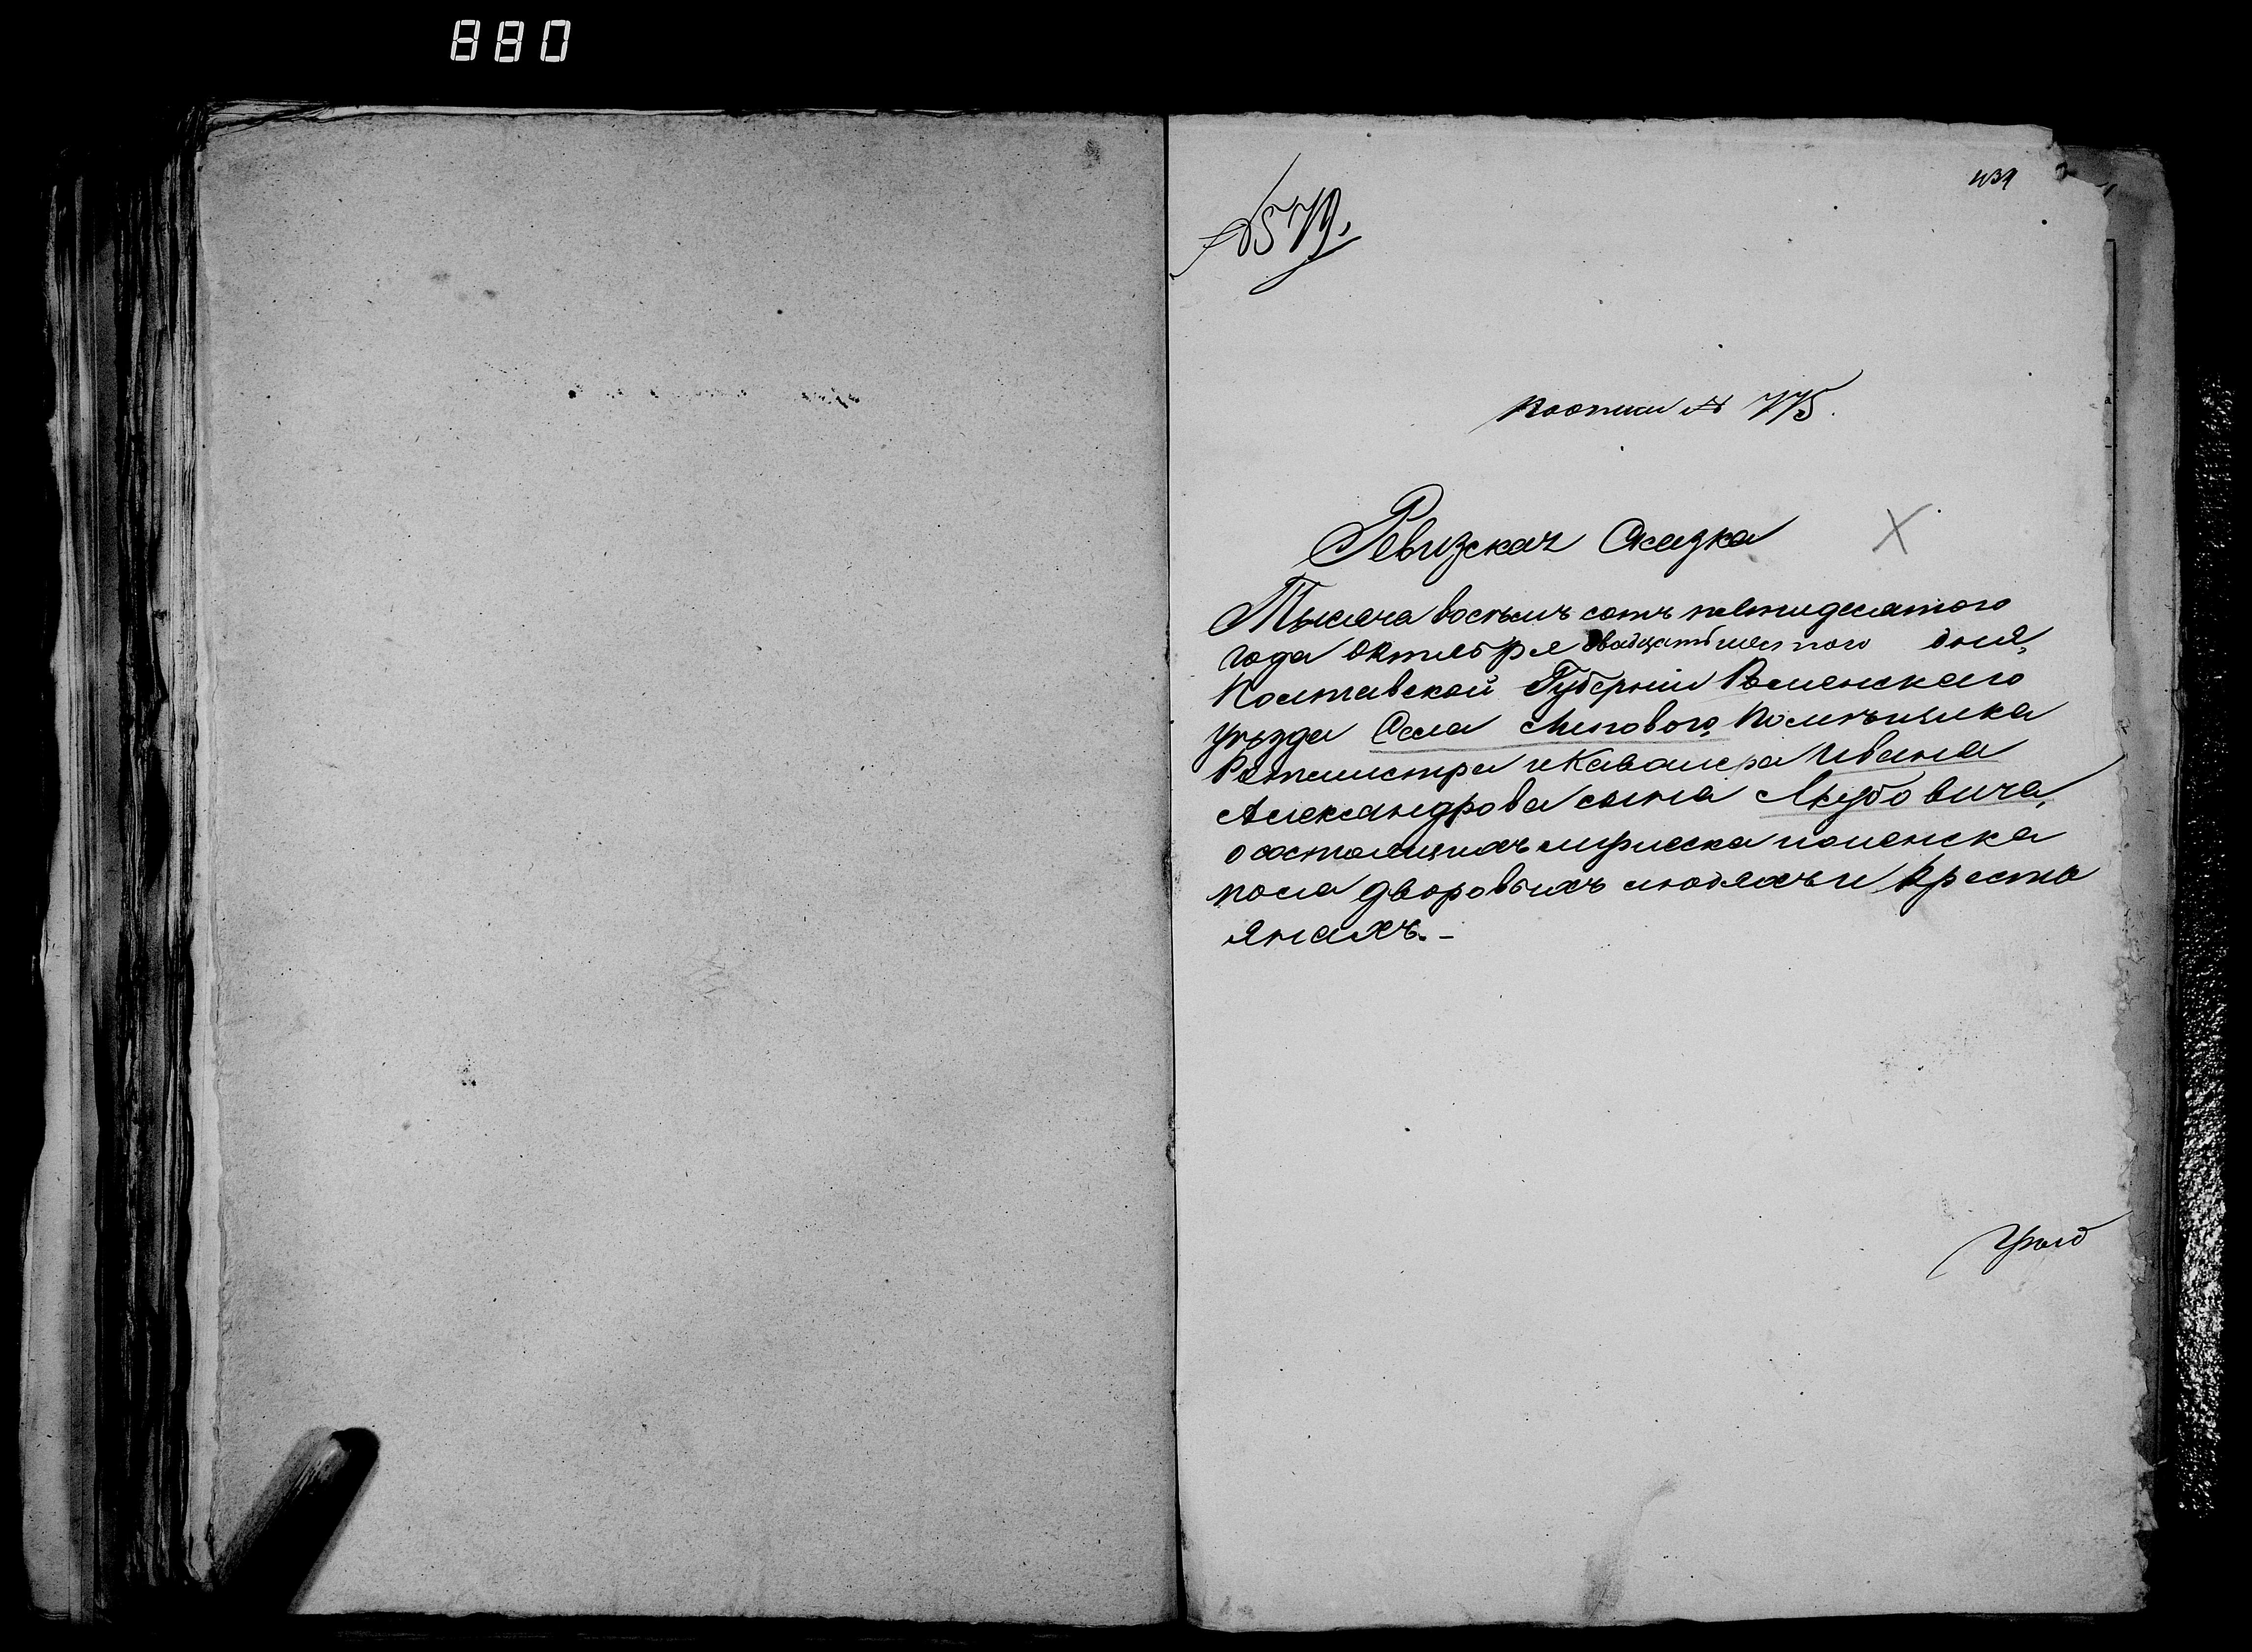 880
439
№ 579.
По описи № 775.
Ревизская Сказка
Тысяча восемъ сотъ пятидесятого
года октября двадцать шестого дня,
Полтавской Губернiи Роменскаго
уезда Села Липового, Помѣщика
Ротмистра и Кавалера Ивана
Александрова сына Якубовича,
о состоящихъ мужеска и женска
пола дворовыхъ людяхъ и кресть
янахъ. –